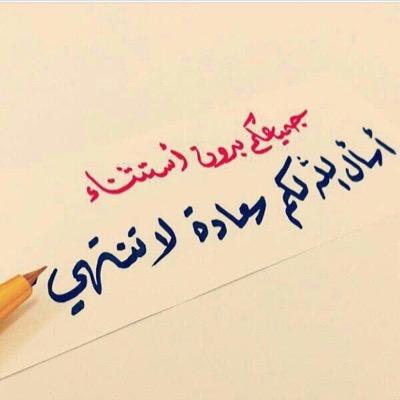 جميعكم بدون أستثناء
أسأل الله لكم سعادة لا تنتهي